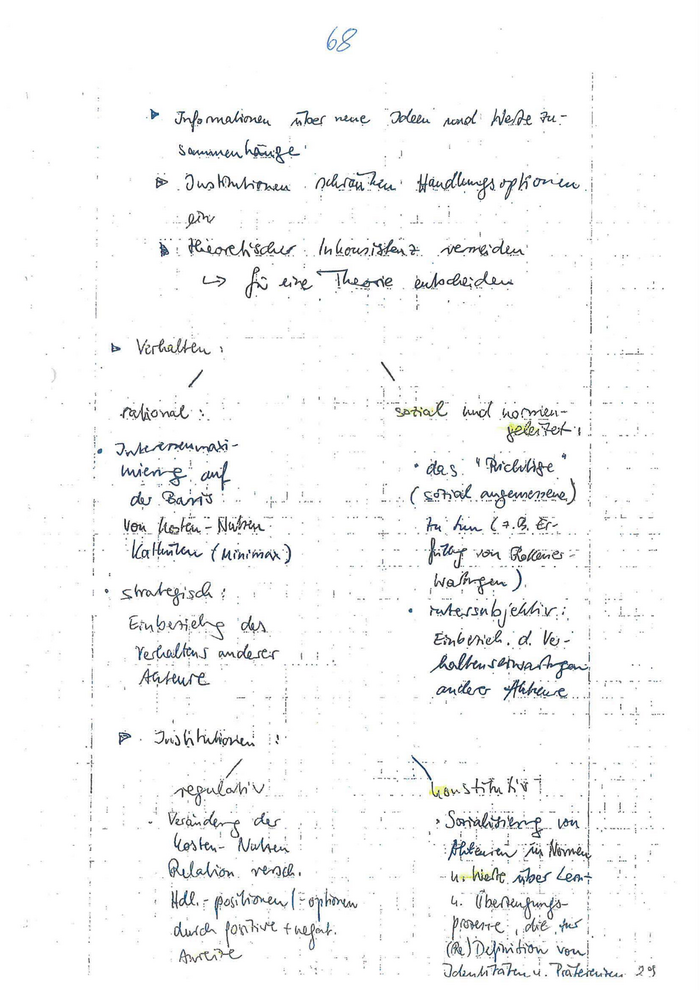 68
▹ Informationen über neue Ideen und Werte zu-
sammenhänge
▹ Institutionen schränken Handlungsoptionen
ein
▹ theoretischer Inkonsistenz vermeiden
↪ für eine Theorie entscheiden
▹ Verhalten:
rational:
• Interessenmaxi-
mierung auf
der Basis
von Kosten-Nutzen
Kalkülen (Minimax)
• strategisch:
Einbeziehg des
Verhaltens anderer
Akteure
sozial und normen-
geleitet:
• das "Richtige"
(sozial angemessene)
zu tun (z.B. Er-
füllg von Rollener-
wartgen)
• intersubjektiv:
Einbezieh. d. Ver-
haltenserwartgen
anderer Akteure
▹ Institutionen:
regulativ
• Veränderg der
Kosten-Nutzen
Relation versch.
Hdl.-positionen/-optionen
durch positive + negat.
Anreize
konstitutiv
• Sozialisierg von
Akteuren in Normen
u. Werte über Lern-
u. Überzeugungs-
prozesse, die zur
(Re)Definition von
Identitäten u. Präferenzen 29